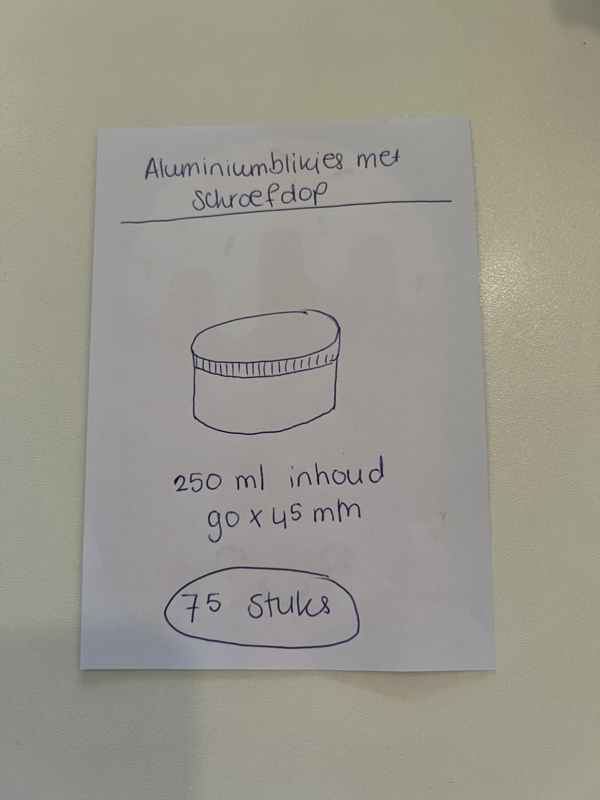 Aluminiumblikjes met
schroefdop
250 ml inhoud
90 x 45 mm
75 stuks